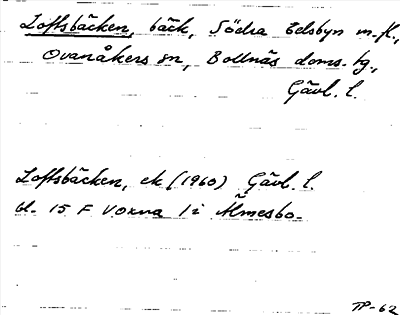 Loftsbäcken, bäck, Södra Edsbyn m.fl.,
Ovanåkers sn, Bollnäs doms. tg.,
Gävl. l.
Loftsbäcken, ek (1960) Gävl. l.
bl. 15 F Voxna 1 i Älmesbo.
TP-62